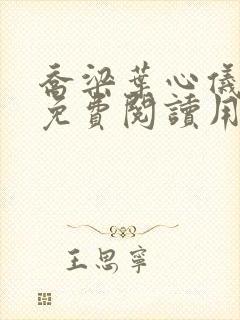 喬梁葉心儀
免費閱讀用
王思寧